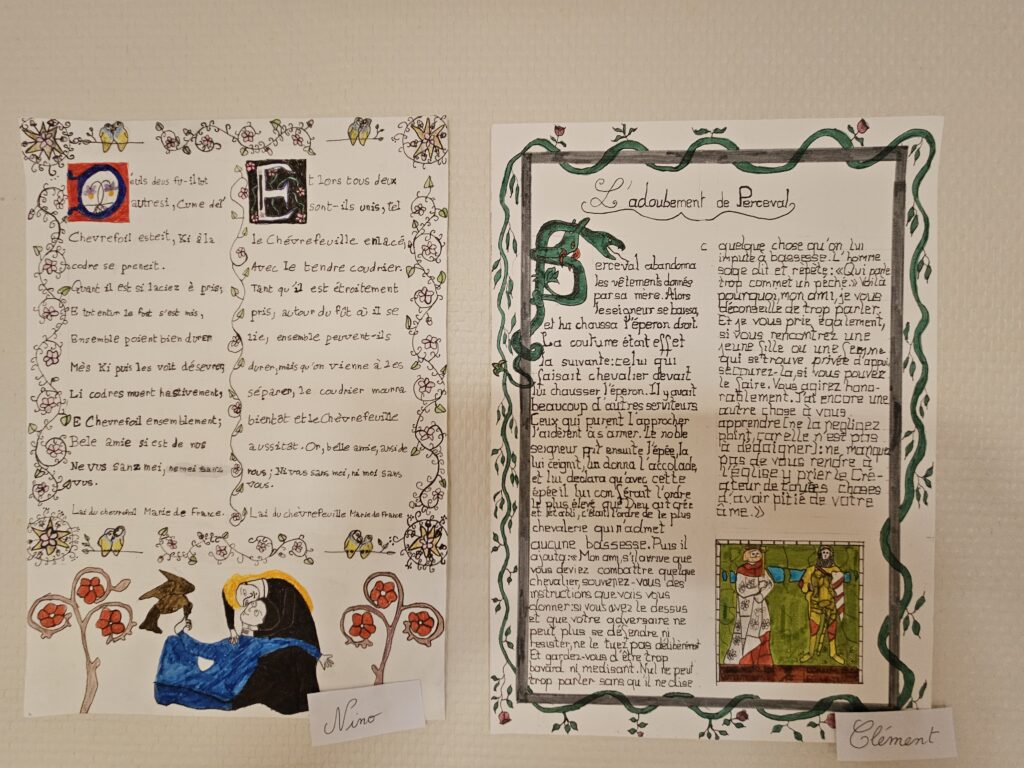 D'euls deus fu-il tot
autresi, Cume del
Chevrefoil esteit, Ki à la
codre se preneit.
Quant il est si laciez è pris,
E tot entur le fust s'est mis,
Ensemble poient bien durer
Mès Ki puis les volt désevrer,
Li codres muert hastivement,
E Chevrefoil ensemblement;
Bele amie si est de nos
Ne vus sanz mei, ne mei sans
vus.
Lai du chevrefoil Marie de France.
Et lors tous deux
sont-ils unis, tel
le Chévrefeuille enlacé,
Avec le tendre coudrier.
Tant qu'il est étroitement
pris, autour du fôt où il se
lie, ensemble peuvent-ils
durer, mais qu'on vienne à les
séparer, le coudrier mourra
bientôt et le Chèvrefeuille
aussitat. Or, belle amie, ainsi de
nous; Ni vous sans moi, ni moi sans
vous.
Lai du chèvrefeuille Marie de France
Nino
L'adoubement de Perceval
Perceval abandonna
les vêtements donnés
par sa mère. Alors
le seigneur se baissa,
et lui chaussa l'éperon droit.
La coutume était effet
la suivante: celui qui
faisait chevalier devait
lui chausser l'éperon. Il y avait
beaucoup d'autres serviteurs
Ceux qui purent l'approcher
l'aidèrent à s'armer. Le noble
seigneur prit ensuite l'épée, la
lui ceignit, lui donna l'accolade,
et lui déclara qu'avec cette
épée il lui conférait l'ordre
le plus élevé que Dieu ait créé
et établi, c'était l'ordre de le plus
chevalerie qui n'admet
aucune bassesse. Puis il
ajouta: « Mon ami, s'il arrive que
vous deviez combattre quelque
chevalier, souvenez-vous des
instructions que vais vous
donner: si vous avez le dessus
et que votre adversaire ne
peut plus se défendre ni
résister, ne le tuez pas délibérément
Et gardez-vous d'être trop
bavard ni médisant. Nul ne peut
trop parler sans qu'il ne dise
c quelque chose qu'on lui
impute à bassesse. L'homme
sage dit et répète: «Qui parle
trop commet un péché.» Voilà
pourquoi, mon ami, je vous
déconseille de trop parler.
Et je vous prie, également,
si vous rencontrez une
jeune fille ou une femme
qui se trouve privée d'appui,
secourez-la, si vous pouvez
le faire. Vous agirez hono-
rablement. J'ai encore une
autre chose à vous
apprendre (ne la négligez
point, car elle n'est pas
à dédaigner): ne manquez
pas de vous rendre à
l'église y prier le Cré-
ateur de toutes choses
d'avoir pitié de votre
âme.»
Clément